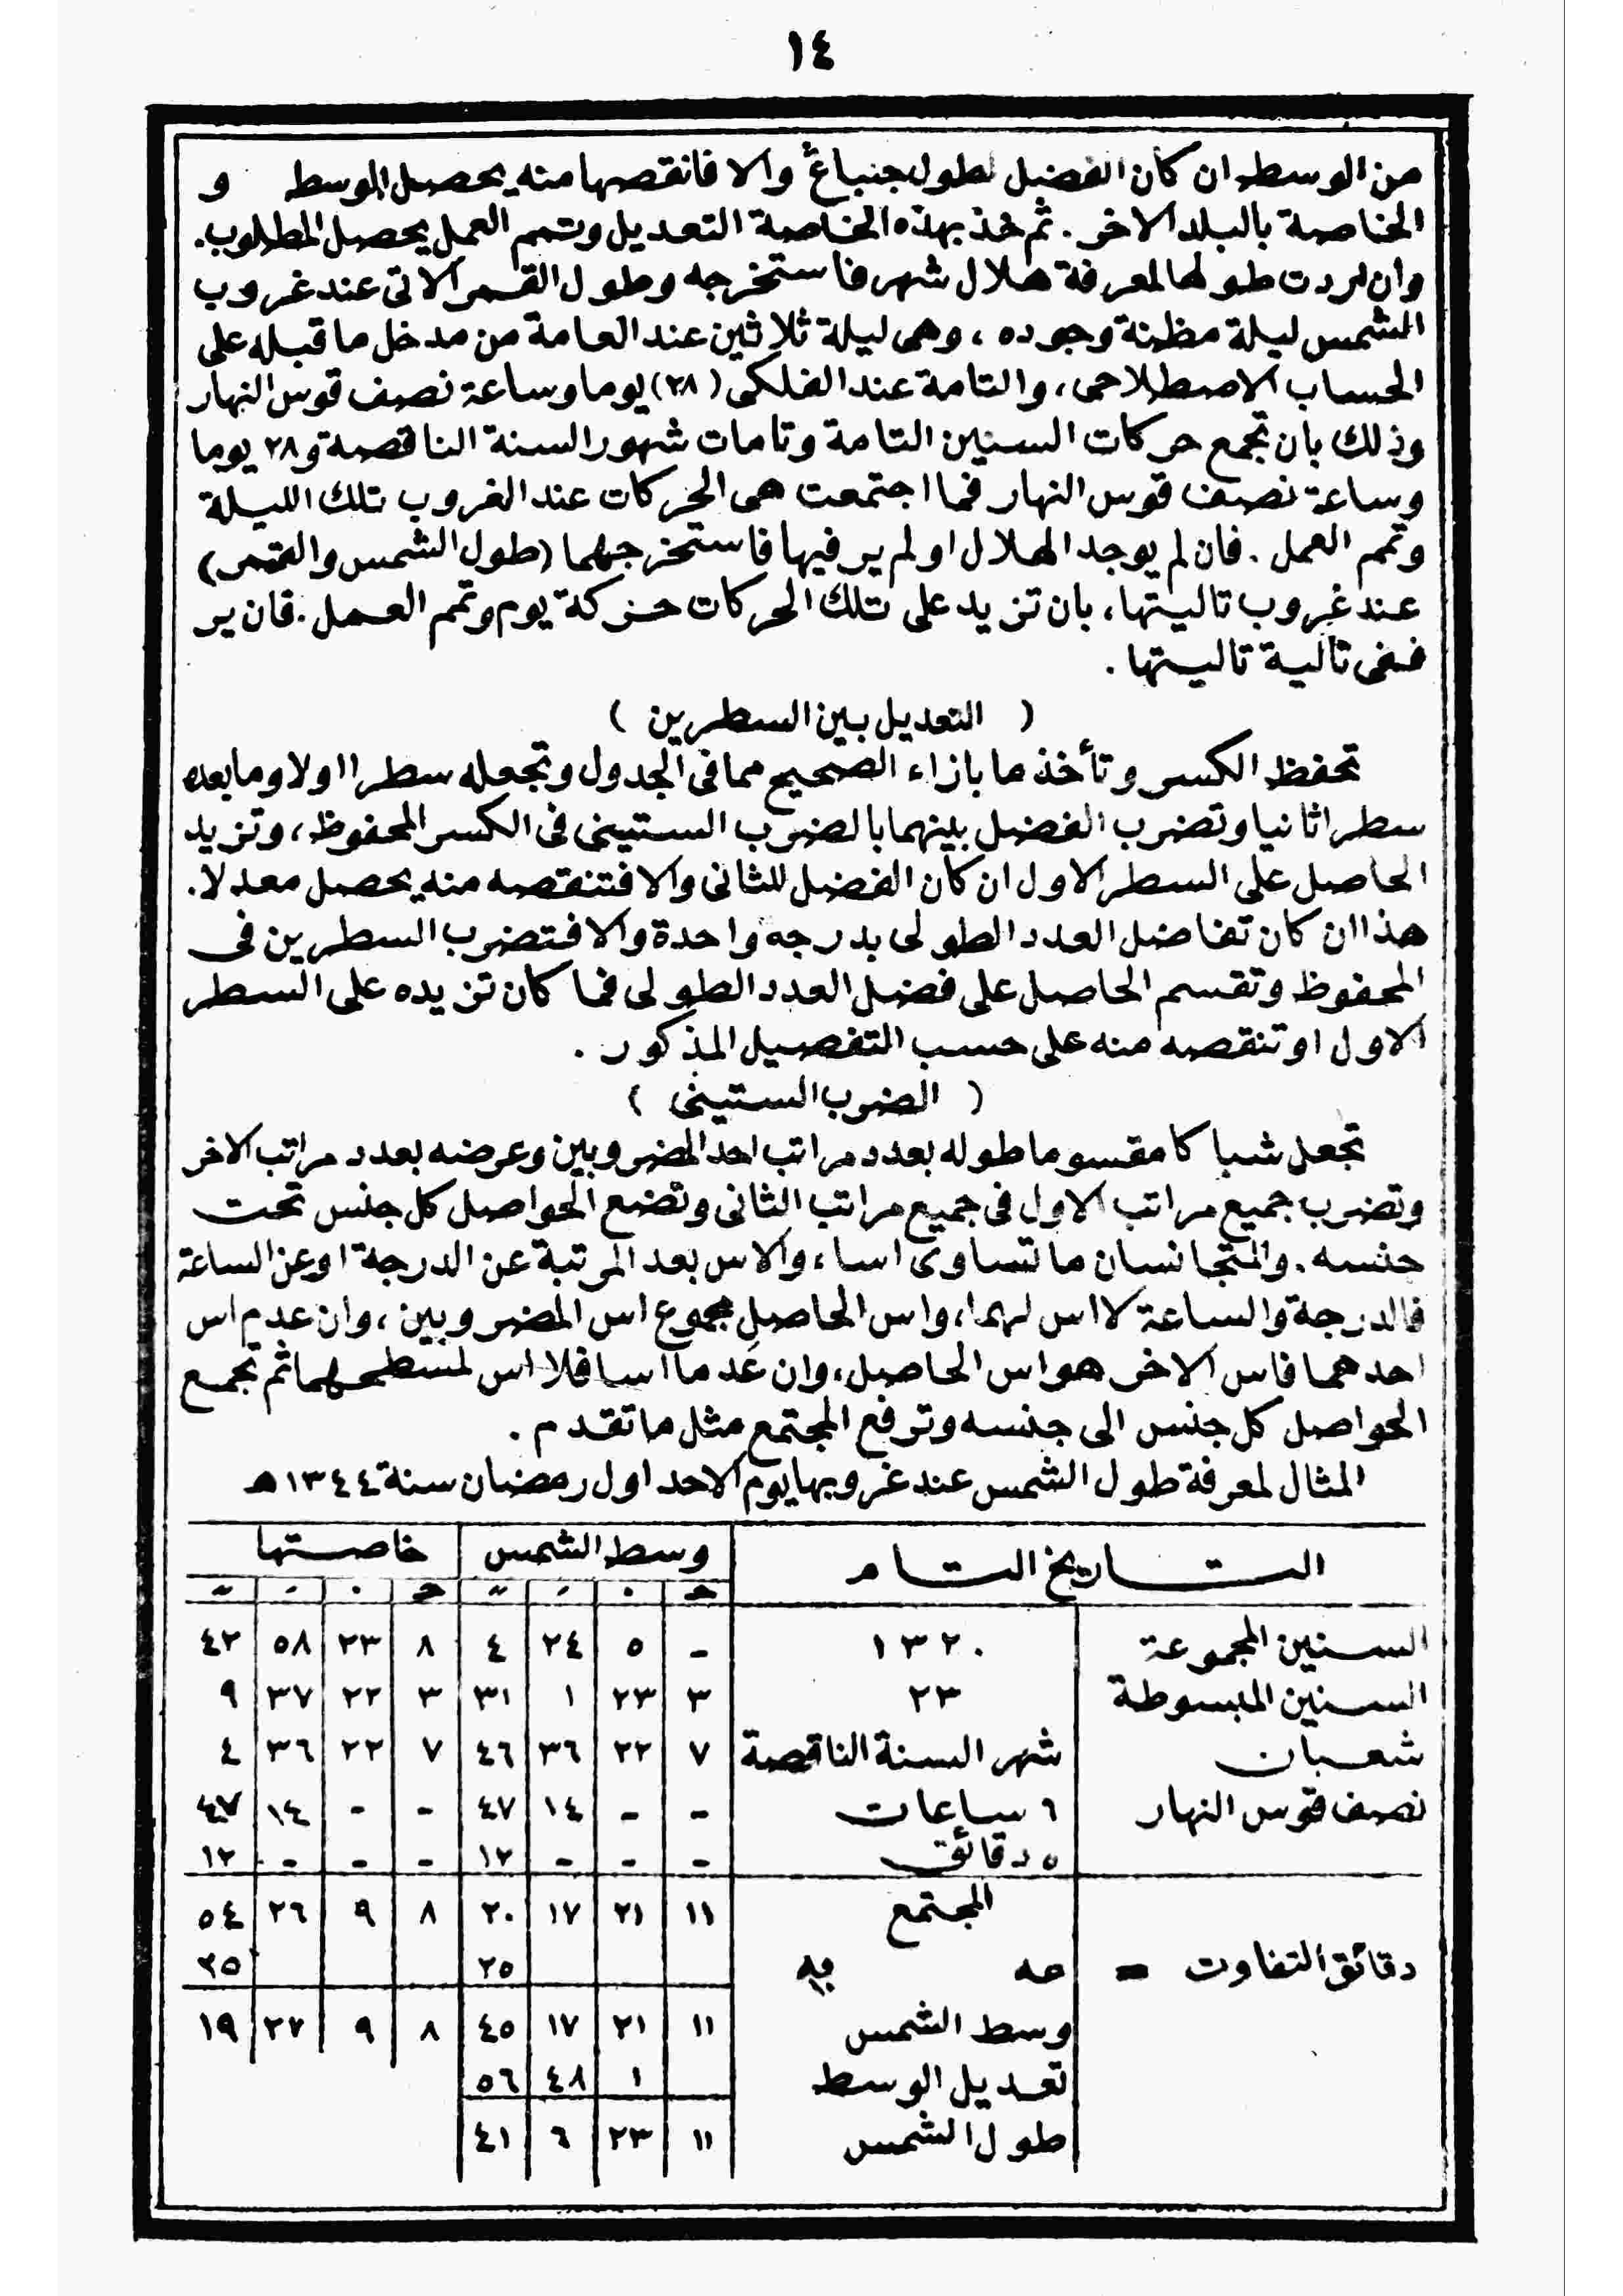 ١٤
من الوسط ان كان الفضل لطول جنباڠ والا فانقصها منه يحصل الوسط و
الخاصة بالبلد الاخر . ثم خذ بهذه الخاصة التعديل وتمم العمل يحصل المطلوب.
وان اردت طولها لمعرفة هلال شهر فاستخرجه وطول القمر الاتى عند غروب
الشمس ليلة مظنة وجوده ، وهى ليلة ثلاثين عند العامة من مدخل ما قبله على
الحساب الاصطلاحى ، والتامة عند الفلكى (٢٨) يوما وساعة نصف قوس النهار
وذلك بان تجمع حركات السنين التامة وتامات شهور السنة الناقصة و٢٨ يوما
وساعة نصف قوس النهار فما اجتمعت هى الحركات عند الغروب تلك الليلة
وتمم العمل . فان لم يوجد الهلال او لم ير فيها فاستخرجهما (طول الشمس والقمر)
عند غروب تاليتها ، بان تزيد على تلك الحركات حركة يوم وتمم العمل . فان ير
ففى تالية تاليتها .
( التعديل بين السطرين )
تحفظ الكسر وتأخذ ما بازاء الصحيح مما فى الجدول وتجعله سطرا اولا وما بعده
سطرا ثانيا وتضرب الفضل بينهما بالضرب الستينى فى الكسر المحفوظ ، وتزيد
الحاصل على السطر الاول ان كان الفضل للثانى والا فتنقصه منه يحصل معدلا.
هذا ان كان تفاضل العدد الطولى بدرجه واحدة والا فتضرب السطرين فى
المحفوظ وتقسم الحاصل على فضل العدد الطولى فما كان تزيده على السطر
الاول او تنقصه منه على حسب التفصيل المذكور .
( الضرب الستينى )
تجعل شباكا مقسوما طوله بعدد مراتب احد المضروبين وعرضه بعدد مراتب الاخر
وتضرب جميع مراتب الاول فى جميع مراتب الثانى وتضع الحواصل كل جنس تحت
جنسه . والمتجانسان ما تساوى اسا ، والاس بعد المرتبة عن الدرجة او عن الساعة
فالدرجة والساعة لا اس لهما ، واس الحاصل مجموع اس المضروبين ، وان عدم اس
احدهما فاس الاخر هو اس الحاصل ، وان عَدما اسا فلا اس لمسطحهما ثم تجمع
الحواصل كل جنس الى جنسه وترفع المجتمع مثل ما تقدم .
المثال لمعرفة طول الشمس عند غروبها يوم الاحد اول رمضان سنة ١٣٤٤ هـ
التاريخ التام وسط الشمس خاصتها
السنين المجموعة ١٣٢٠ - ٥ ٢٤ ٤ ٨ ٢٣ ٥٨ ٤٢
السنين المبسوطة ٢٣ ٣ ٢٣ ١ ٣١ ٣ ٢٢ ٣٧ ٩
شعبان شهر السنة الناقصة ٧ ٢٢ ٣٦ ٤٦ ٧ ٢٢ ٣٦ ٤
نصف قوس النهار ٦ ساعات - - ١٤ ٤٧ - - ١٤ ٤٧
٥ دقائق - - - ١٢ - - - ١٢
المجتمع ١١ ٢١ ١٧ ٢٠ ٨ ٩ ٢٦ ٥٤
دقائق التفاوت = ٢٥ ٢٥
وسط الشمس ١١ ٢١ ١٧ ٤٥ ٨ ٩ ٢٧ ١٩
تعديل الوسط ١ ٤٨ ٥٦
طول الشمس ١١ ٢٣ ٦ ٤١